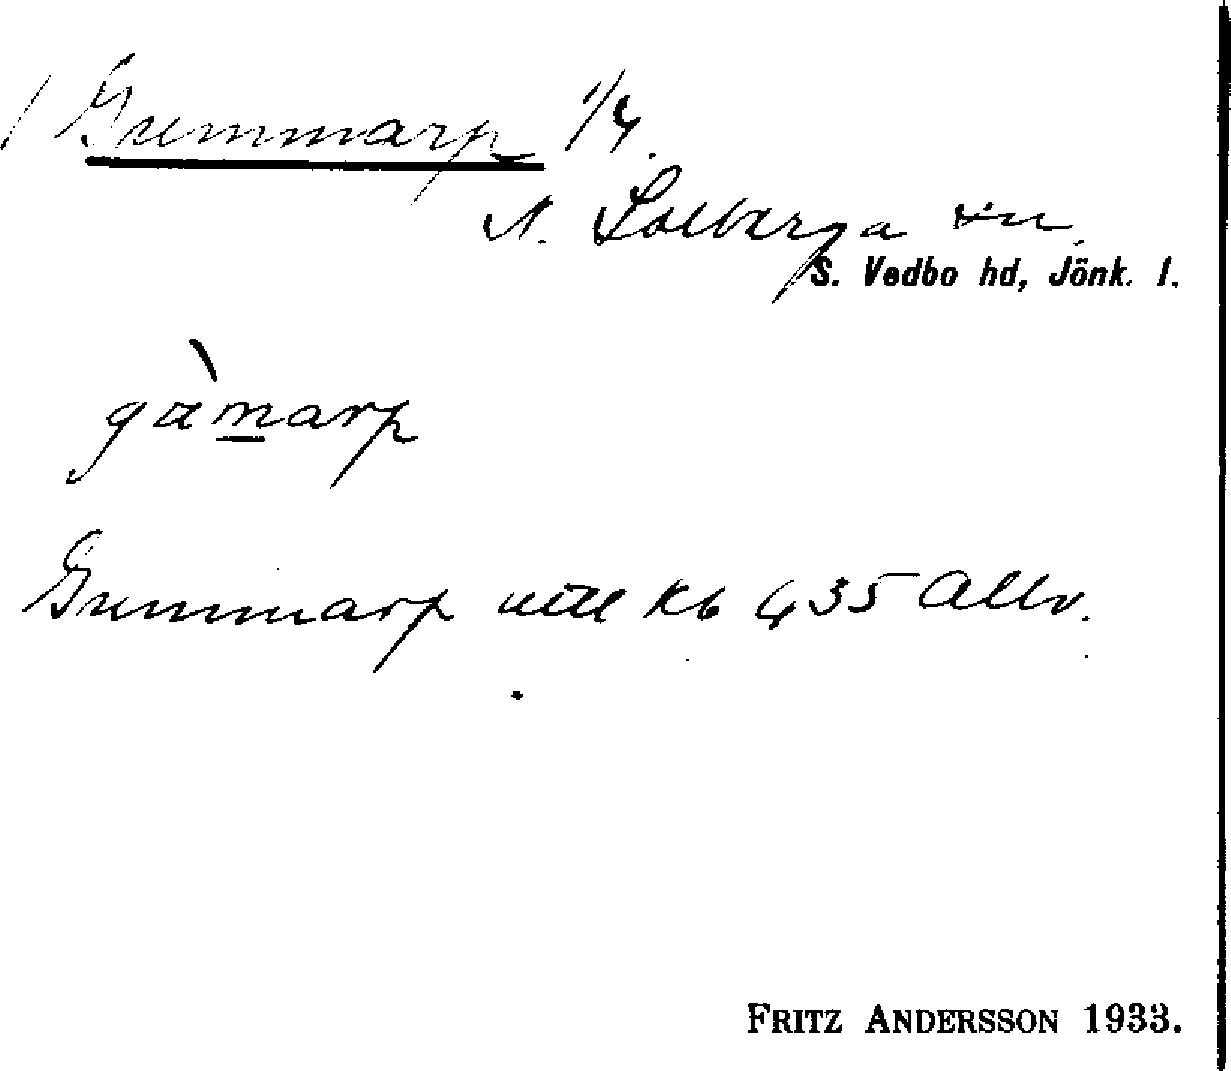 Gummarp 1/4.
N. Solberga sn
S. Vedbo hd, Jönk. l.
gamarp
Gummarp uttl kb 435 Allv.
FRITZ ANDERSSON 1933.